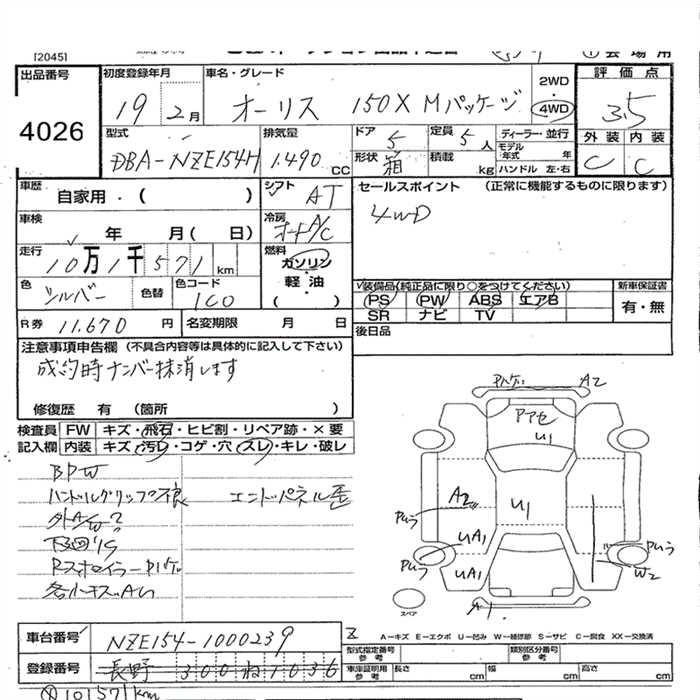 [2045]
出品番号
4026
初度登録年月
19 2月
車名・グレード
オーリス 150X Mパッケージ
2WD
4WD
評価点
3.5
外装 内装
C C
型式
DBA-NZE154H
排気量
1.490 CC
ドア 5
定員 5人
形状 箱
積載 kg
ディーラー・並行
モデル年式 年
ハンドル 左・右
車歴
自家用・( )
シフト
AT
セールスポイント (正常に機能するものに限ります)
4WD
車検
年 月( 日)
冷房
オートA/C
走行
10万1千571km
燃料
ガソリン・軽油・( )
色
シルバー
色替
色コード
1C0
装備品(純正品に限り○をつけてください)
PS PW ABS エアB
SR ナビ TV
新車保証書
有・無
R券 11.670円
名変期限 月 日
後日品
注意事項申告欄 (不具合内容等は具体的に記入して下さい)
成約時ナンバー抹消します
修復歴 有 (箇所 )
検査員記入欄
FW キズ・飛石・ヒビ割・リペア跡・×要
内装 キズ・汚レ・コゲ・穴・スレ・キレ・破レ
BPW
ハンドルグリップ不良 エンドパネル歪
外A/W?
下回りS
Rスポイラーハゲ
各所キズ.AU
ハゲ A2
アアセ
U1
A2
U1
UA1
UA1
W2
A1
スペア
A－キズ E－エクボ U－凹み W－補修跡 S－サビ C－腐食 XX－交換済
車台番号 NZE154-1000239
登録番号 長野 300 ね 1036
型式指定番号 参考
類別区分番号 参考
車庫証明用 参考 長さ cm 幅 cm 高さ cm
101571km